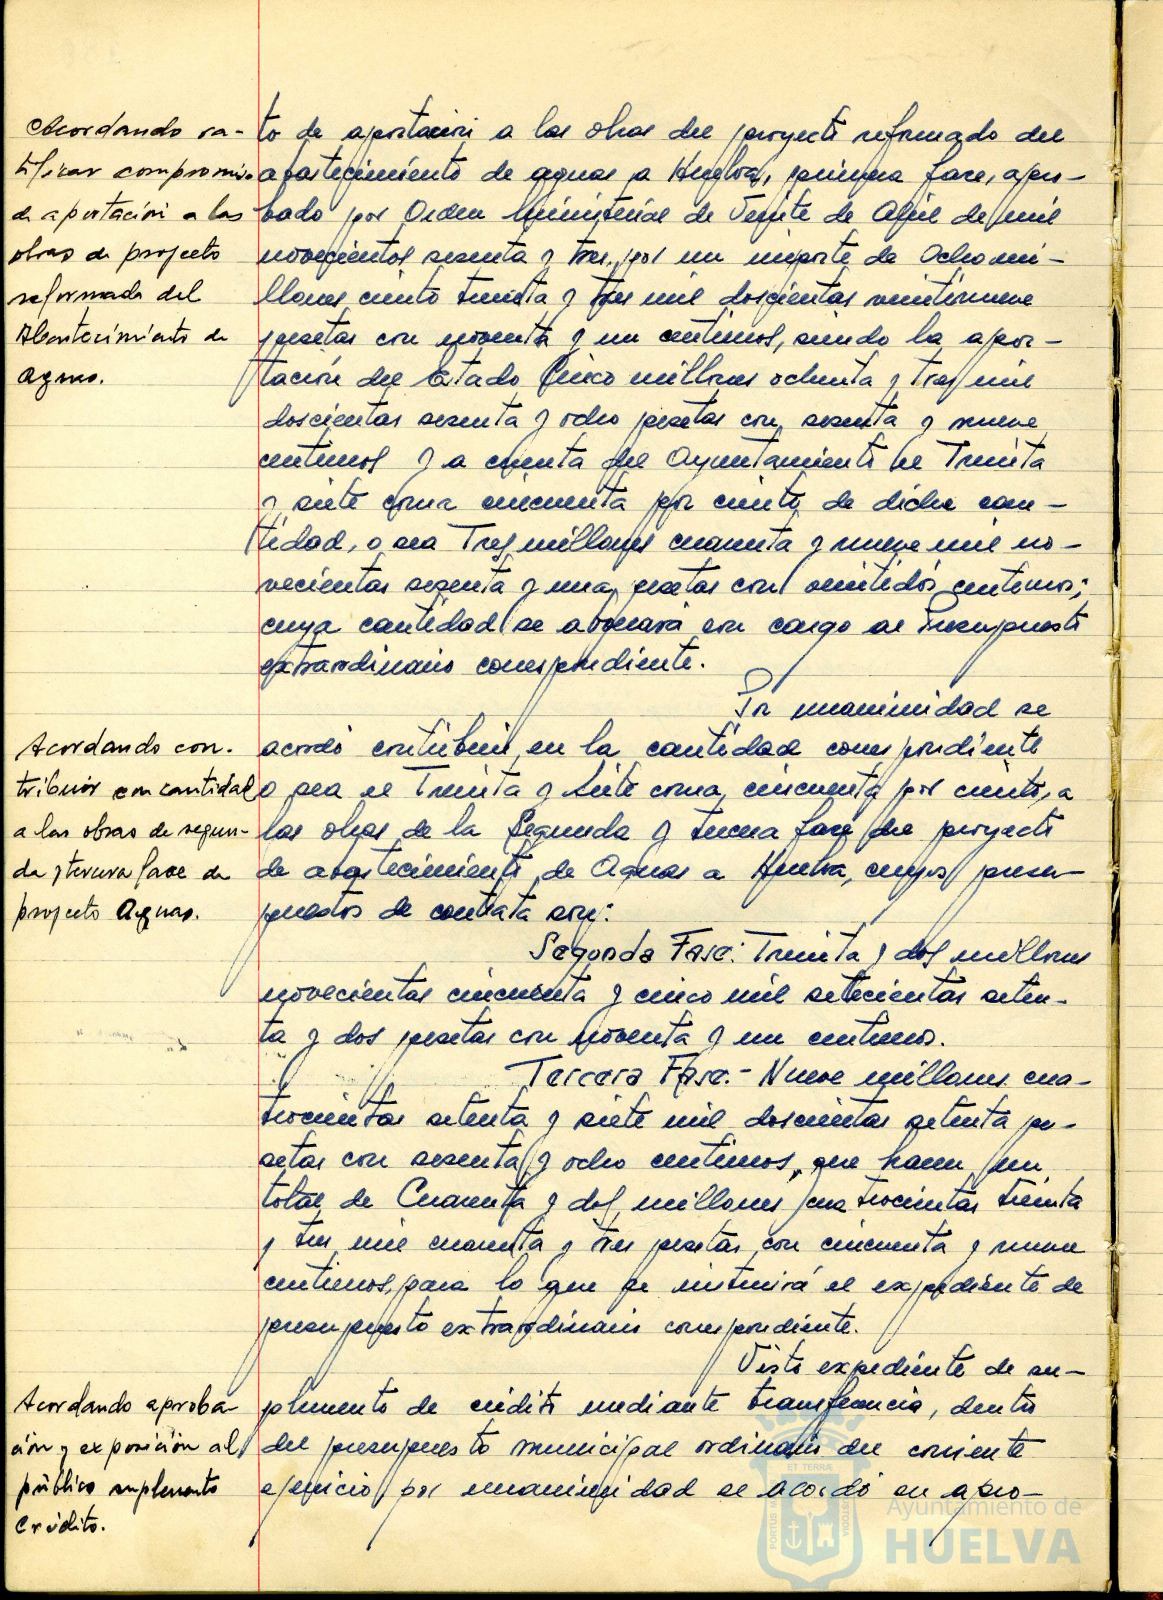 Acordando ra-
tificar compromiso
de aportación a las
obras de proyecto
reformado del
Abastecimiento de
aguas.
to de aportación a las obras del proyecto reformado del
abastecimiento de aguas a Huelva, primera fase, apro-
bado por Orden Ministerial de Veinte de Abril de mil
novecientos sesenta y tres, por un importe de Ocho mi-
llones ciento treinta y tres mil doscientas veintinueve
pesetas con noventa y un centimos, siendo la apor-
tación del Estado Cinco millones ochenta y tres mil
doscientas sesenta y ocho pesetas con sesenta y nueve
centimos y a cuenta del Ayuntamiento el Treinta
y siete coma cincuenta por ciento de dicha can-
tidad, o sea Tres millones cuarenta y nueve mil no-
vecientas sesenta y una pesetas con veintidós centimos;
cuya cantidad se abonará con cargo al Presupuesto
extraordinario correspondiente.
Por unanimidad se
Acordando con-
tribuir con cantidad
a las obras de segun-
da y tercera fase de
proyecto Aguas.
acordó contribuir en la cantidad correspondiente
o sea el Treinta y Siete coma cincuenta por ciento, a
las obras de la Segunda y tercera fase del proyecto
de abastecimiento de Aguas a Huelva, cuyos presu-
puestos de contrata son:
Segunda Fase: Treinta y dos millones
novecientas cincuenta y cinco mil setecientas seten-
ta y dos pesetas con noventa y un centimos.
Tercera Fase.- Nueve millones cua-
trocientas setenta y siete mil doscientas setenta pe-
setas con sesenta y ocho centimos, que hacen un
total de Cuarenta y dos millones cuatrocientas treinta
y tres mil cuarenta y tres pesetas con cincuenta y nueve
centimos, para lo que se instruirá el expediente de
presupuesto extraordinario correspondiente.
Visto expediente de su-
Acordando aproba-
ción y exposición al
público suplemento
Crédito.
plemento de crédito mediante transferencia, dentro
del presupuesto municipal ordinario del corriente
ejercicio, por unanimidad se acordó su apro-
Ayuntamiento de
HUELVA